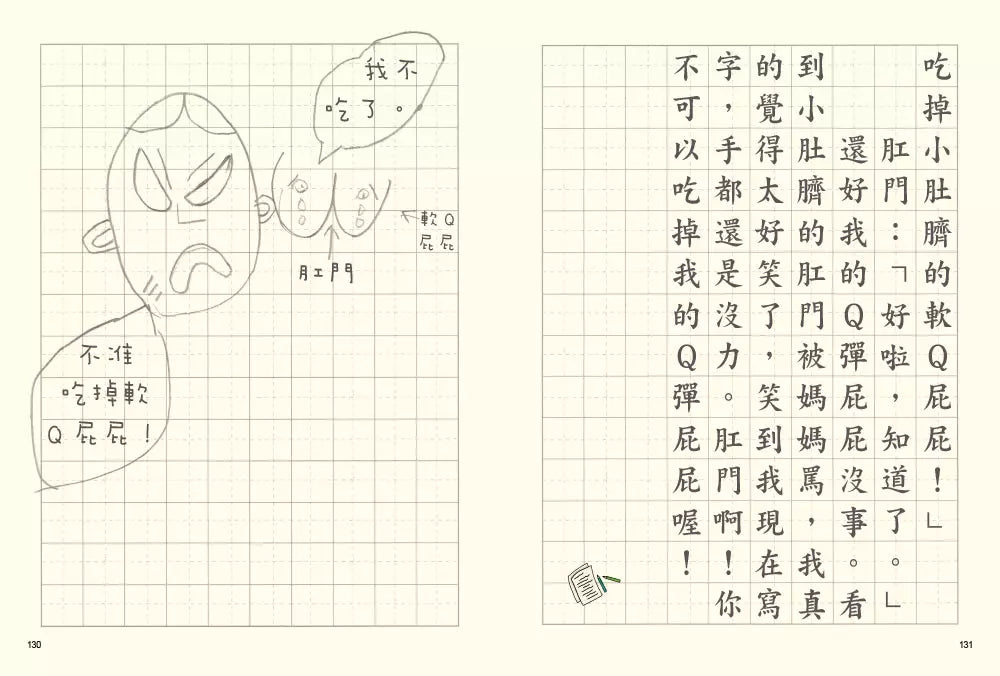 我不
吃了。
軟Q
屁屁
肛門
不准
吃掉軟
Q屁屁！
130
吃掉小肚臍的軟Q屁屁！」
肛門：「好啦，知道了。」
還好我的Q彈屁屁沒事。看
到小肚臍的肛門被媽媽罵，我真
的覺得太好笑了，笑到我現在寫
字，手都還是沒力。肛門啊！你
不可以吃掉我的Q彈屁屁喔！
131